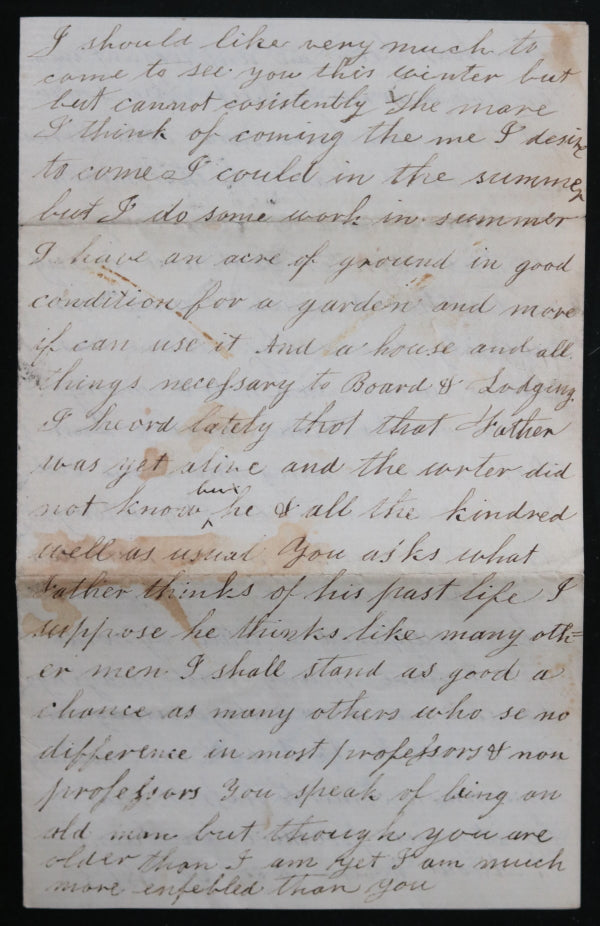 I should like very much to
come to see you this winter but
but cannot cosistently The more
I think of coming the me I desire
to come I could in the summer
but I do some work in summer
I have an acre of ground in good
condition for a garden and more
if can use it And a house and all
things necessary to Board & Lodging
I heard lately thot that Father
was yet alive and the wrter did
not know but he & all the kindred
well as usual You asks what
Father thinks of his past life I
suppose he thinks like many oth=
er men I shall stand as good a
chance as many others who se no
difference in most professors & non
professors You speak of being an
old man but though you are
older than I am yet I am much
more enfebled than you